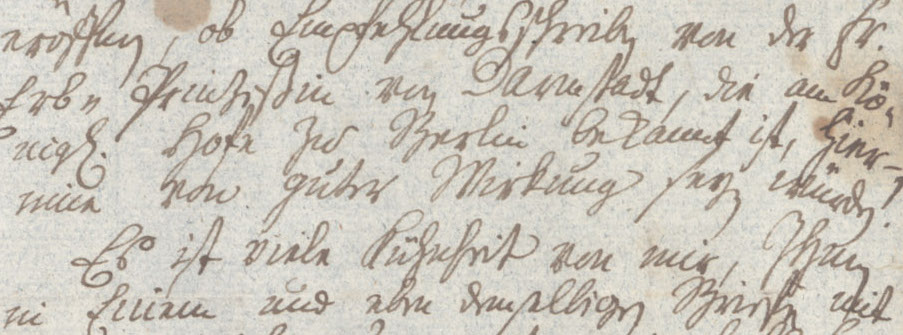 eröffnen, ob Empfehlungsschreiben von der Fr.
Erbe Prinzeßin von Darmstadt, die am Kö-
nigl. Hofe zu Berlin bekannt ist, hier-
von guter Wirkung seyn würden!
Es ist viele Kühnheit von mir, Ihnen
in Einem und eben demselbigen Briefe mit